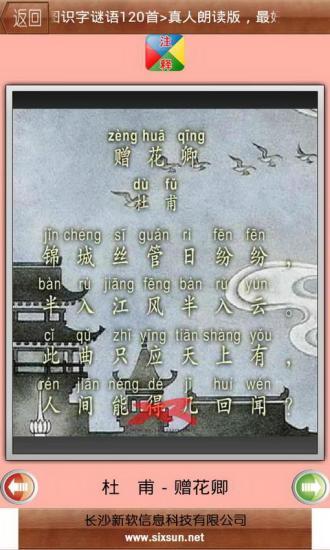 返回
识字谜语120首>真人朗读版，最
注
释
zèng huā qīng
赠花卿
dù fǔ
杜甫
jǐn chéng sī guǎn rì fēn fēn
锦城丝管日纷纷，
bàn rù jiāng fēng bàn rù yún
半入江风半入云。
cǐ qǔ zhǐ yīng tiān shàng yǒu
此曲只应天上有，
rén jiān néng dé jǐ huí wén
人间能得几回闻？
杜 甫 - 赠花卿
长沙新软信息科技有限公司
www.sixsun.net